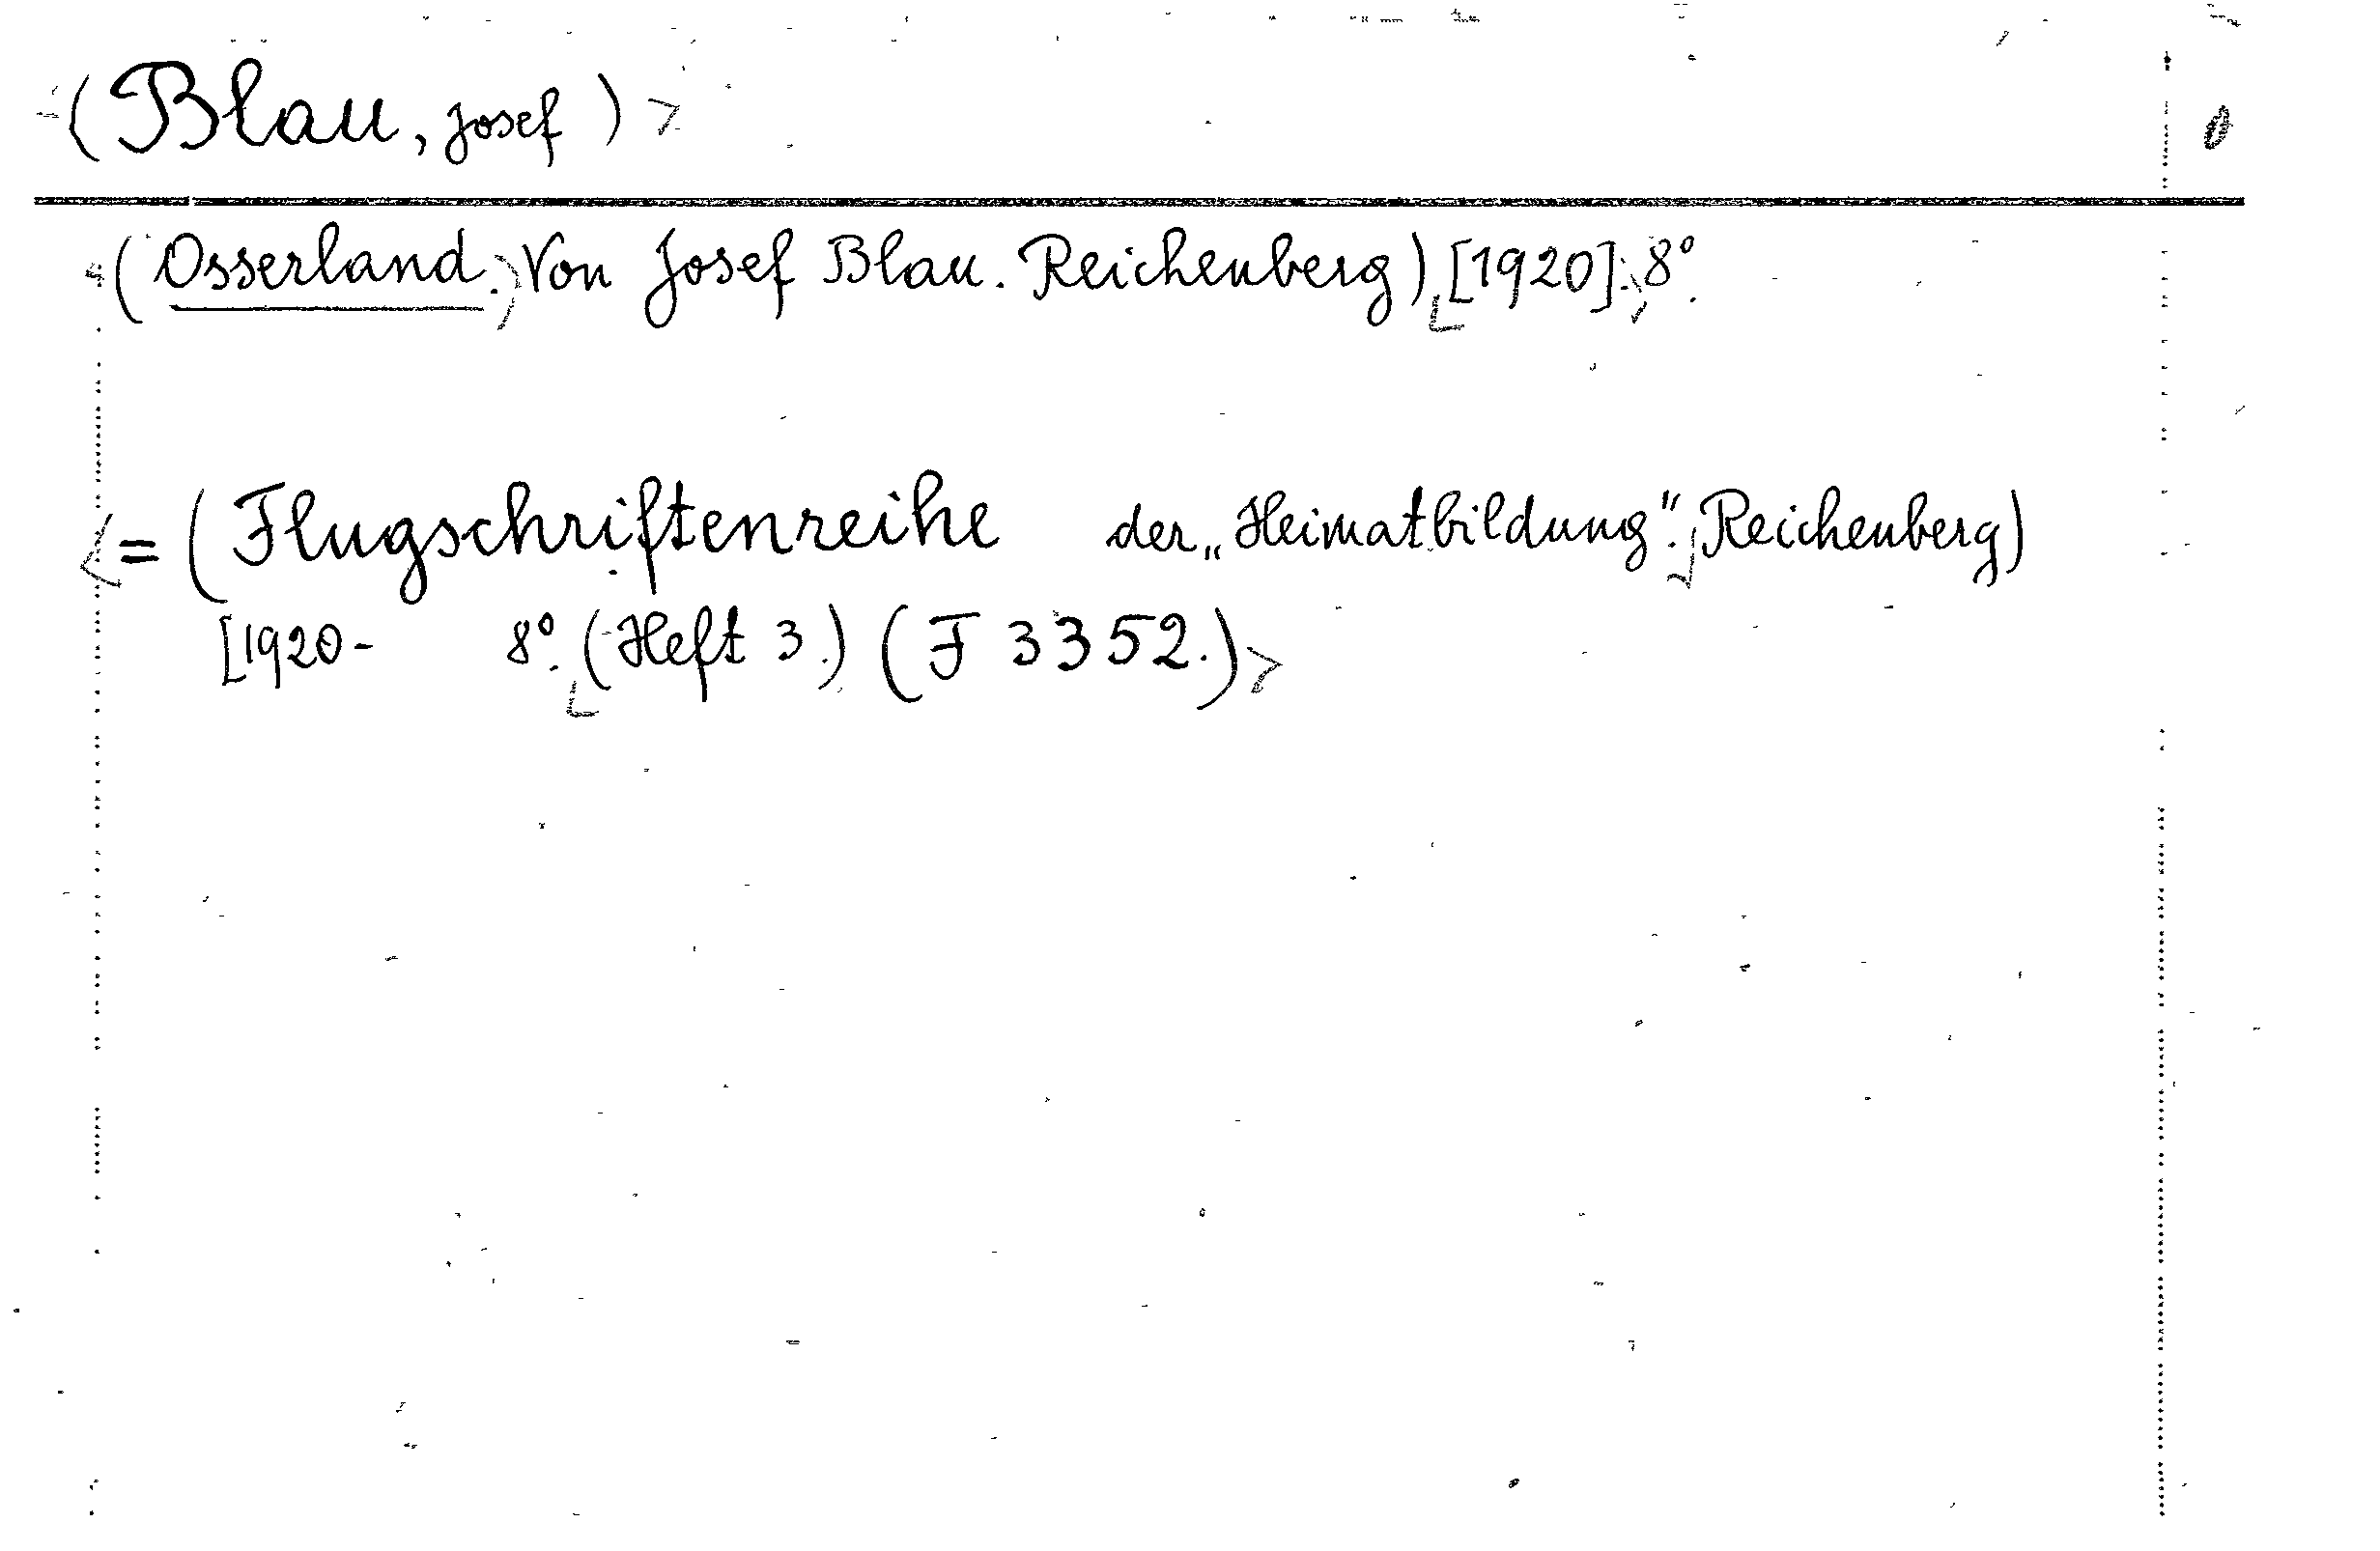 (Blau, Josef)
(Osserland. Von Josef Blau. Reichenberg) [1920]. 8°.
= (Flugschriftenreihe der „Heimatbildung". Reichenberg)
[1920- 8°. (Heft 3.) (F 3352.)